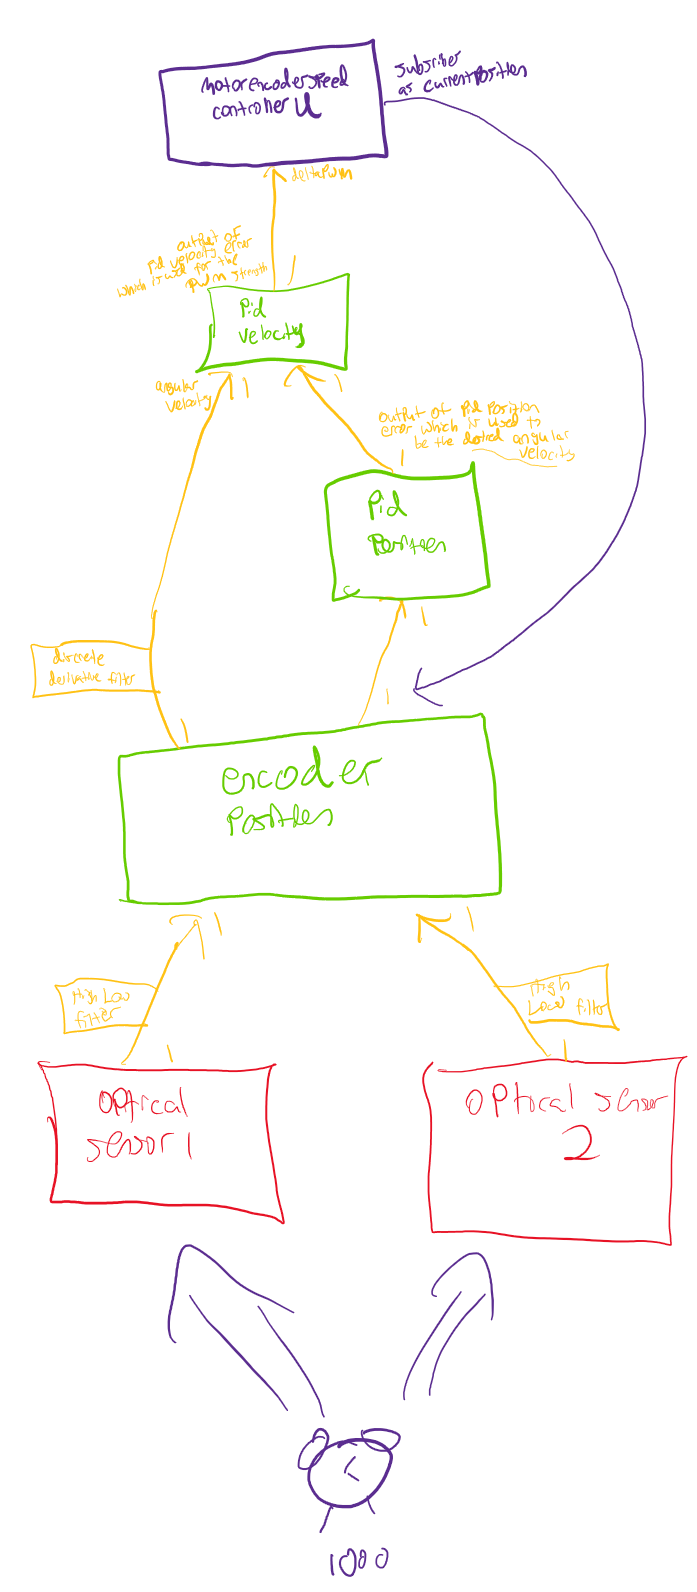 motorencoderspeed
controller U
subscriber
as currentPosition
deltaPwm
output of
Pid velocity error
which is used for the
Pwm strength
1
Pid
velocity
angular
velocity
1
1
output of Pid Position
error which is used to
be the desired angular
velocity
1
Pid
Position
1
discrete
derivative filter
1
1
encoder
Position
1
1
High Low
filter
High
Low filter
1
1
optical
sensor 1
optical sensor
2
1000